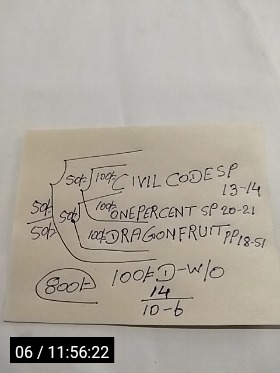 50/- 100/- CIVIL CODE SP
13-14
50/- 50/- 100/- ONE PERCENT SP 20-21
50/- 100/- DRAGON FRUIT PP 18-51
800/- 100/- D-W/O
14
10-6
06 / 11:56:22